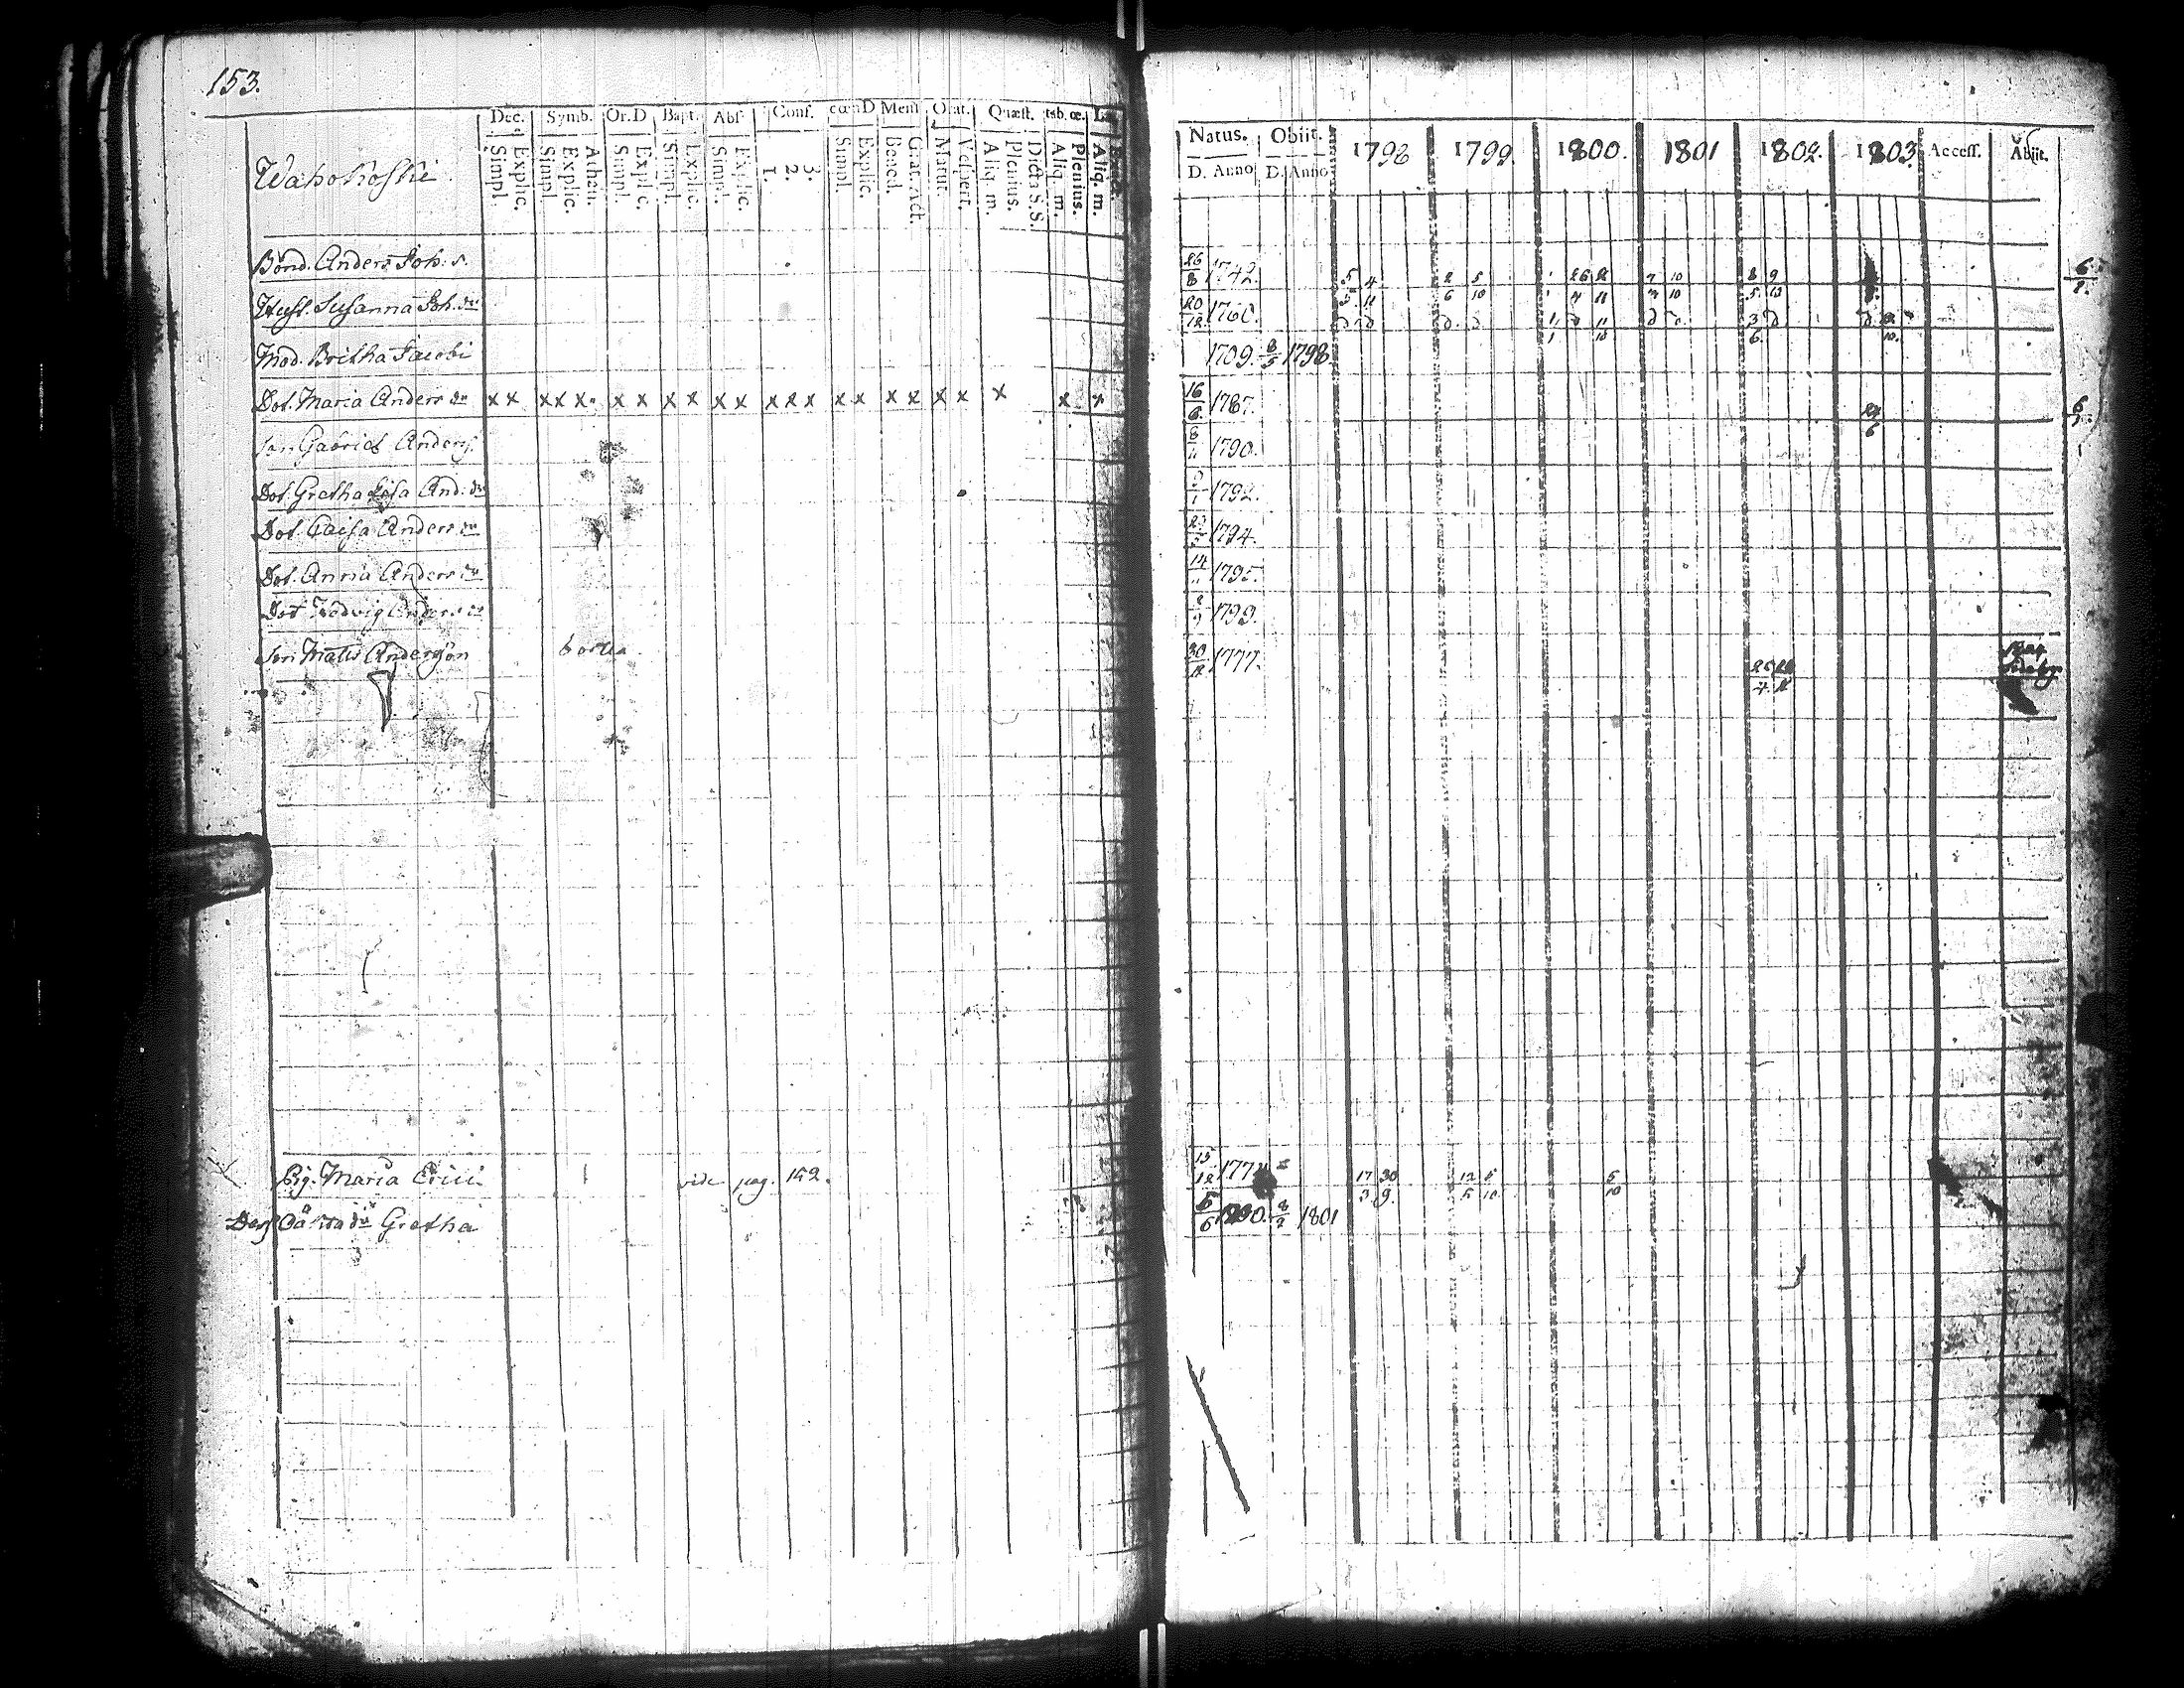 153.
Dec. Symb. Or.D Bapt. Abs. Conf. cœnD Mens Orat. Quæst.
Simpl. Explic. Simpl. Explic. Athan. Simpl. Explic. Simpl. Explic. Simpl. Explic. 1. 2. 3. Simpl. Explic. Bened. Grat. Act. Matut. Vespert. Aliq. m. Plenius. Dicta S.S. Aliq. m. Plenius. Aliq. m.
Natus. Obiit. 1798 1799. 1800. 1801 1802. 1803. Access. Abiit.
D. Anno D. Anno
Wahokoski
Bond. Anders Joh: s. 26/8 1742. 5/5 4/11 2/6 5/10 7/7 10/10 8/5 9/13 6/2.
Hust. Susanna Joh. dr 20/12 1760. d d d d d d
Mod. Britha Jacobi 1709. 8/5 1798.
Dot. Maria Anders dr x x x x x x x x x x x x x x x x x x x x x x x 16/6 1787.
son Gabriel Anders. 8/11 1790.
Dot. Gretha Lisa And: dr 9/1 1792.
Dot. Caisa Anders dr 1794.
Dot. Anna Anders dr 14/11 1795.
Dot. Hedvig Anders dr 1799.
Son Matts Anderson borta 30/12 1777.
Pig. Maria Erici vide pag. 152. 15/12 17/3 30/9. 12/5 5/10 5/10
Dess Oä dr Gretha 5/6 8/2 1801